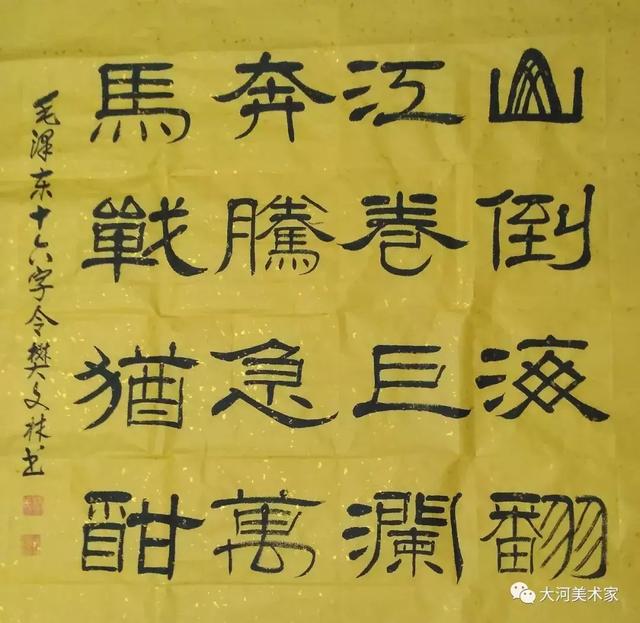 山倒海翻
江卷巨瀾
奔騰急萬
馬戰猶酣
毛泽东十六字令樊文林书
大河美术家